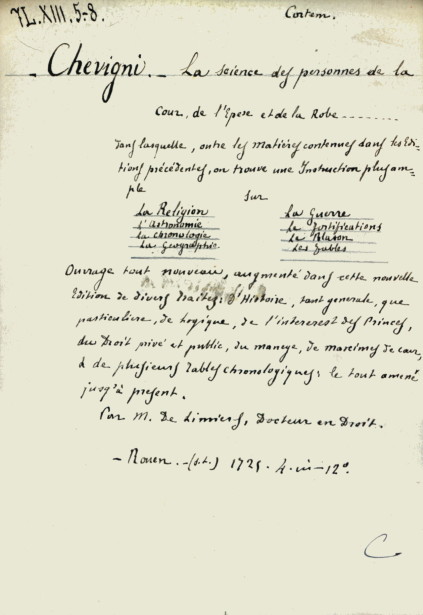 7L.XIII.5-8.
Contem.
- Chevigni. - La science des personnes de la
Cour, de l'Epee et de la Robe --------
Dans lasquelle, outre les matières contenues dans les Edi-
tions précédentes, on trouve une Instruction plus am-
ple
sur
La Religion
L'Astronomie
La chronologie
La Geographie
La Guerre
Le Fortifications
Le Blason
Les Fables
Ouvrage tout nouveau, augmenté dans cette nouvelle
Edition de divers traitez: D'Histoire, tant generale, que
particuliere, de Logique, de l'interest des Princes,
du Droit privé et public, du manege, de maximes de cour,
& de plusieurs Tables chronologiques: le tout amené
jusq'à present.
Par M. De Limiers, Docteur en Droit.
- Rouen. - (s.t.) 1725. 4. in-12º.
C